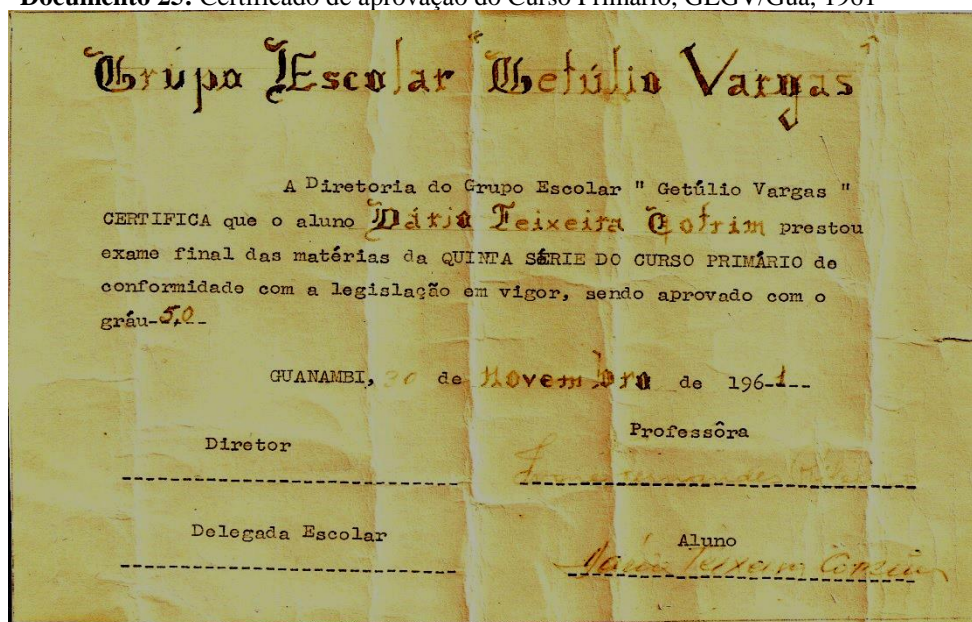 Documento 25: Certificado de aprovação do Curso Primário, GEGV/Gua, 1961
Grupo Escolar "Getúlio Vargas"
A Diretoria do Grupo Escolar " Getúlio Vargas "
CERTIFICA que o aluno Dário Teixeira Cotrim prestou
exame final das matérias da QUINTA SÉRIE DO CURSO PRIMÁRIO de
conformidade com a legislação em vigor, sendo aprovado com o
gráu-5,0--
GUANAMBI, 30 de Novembro de 196-1--
Diretor
Professôra
Delegada Escolar
Aluno
Dário Teixeira Cotrim